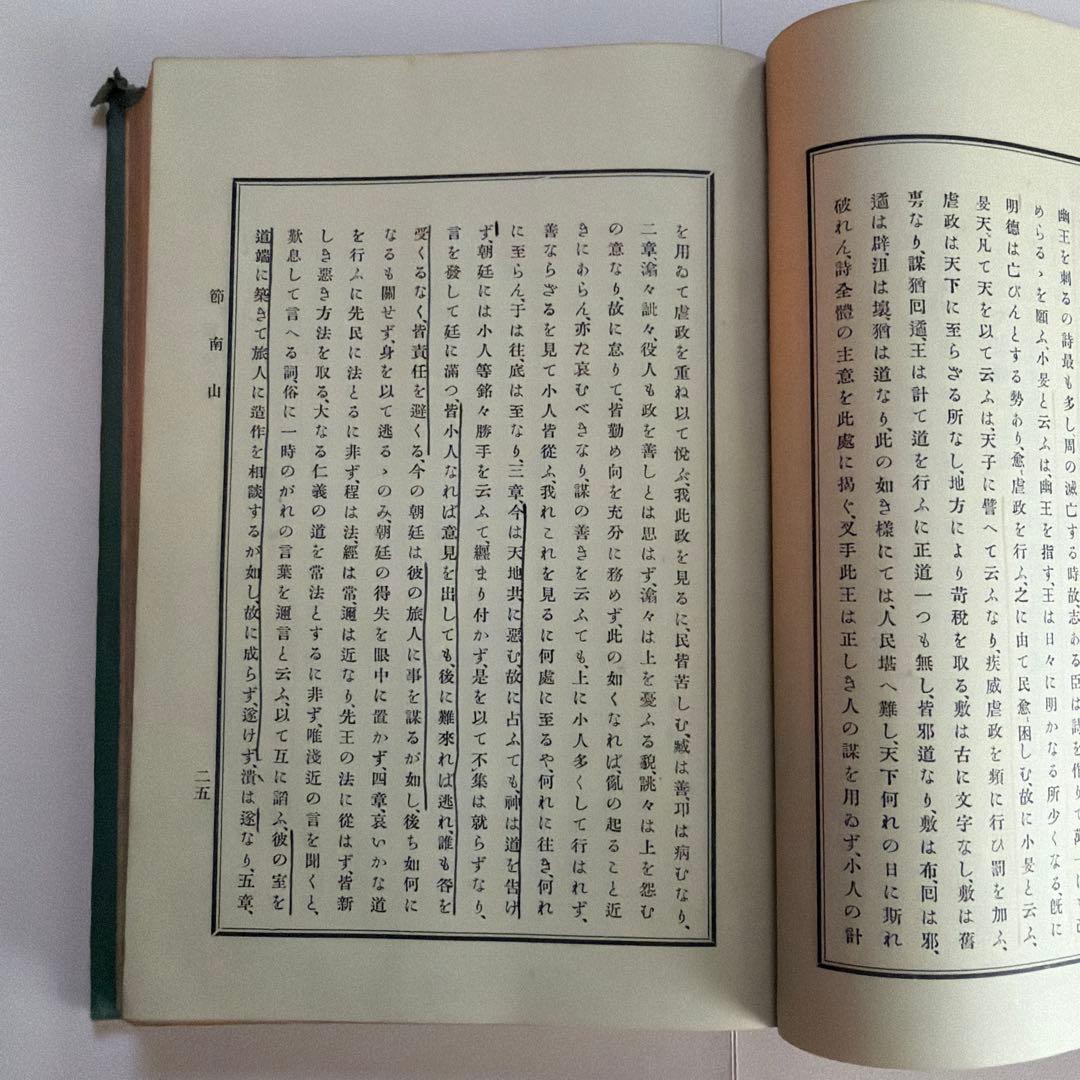 幽王を刺るの詩最も多し、周の滅亡する時故志ある臣は詩を作りて
めらるゝを願ふ、小旻と云ふは幽王を指す、王は日々に明かなる所少くなる、旣に
明德は亡びんとする勢あり、愈〻虐政を行ふ、之に由て民愈〻困しむ故に小旻と云ふ、
旻天、凡て天を以て云ふは、天子に譬へて云ふなり、疾威虐政を頻に行ひ罰を加ふ、
虐政は天下に至らざる所なし、地方により苛稅を取る、敷は古に文字なし、敷は舊
旉なり、謀猶回遹、王は計て道を行ふに正道一つも無し、皆邪道なり、敷は布、回は邪、
遹は辟、沮は壞、猶は道なり、此の如き樣にては、人民堪へ難し、天下何れの日に斯れ
破れん、詩全體の主意を此處に揭ぐ、又手此王は正しき人の謀を用ゐず、小人の計
を用ゐて虐政を重ね以て悅ぶ、我此政を見るに、民皆苦しむ、臧は善、卭は病むなり、
二章潝々訿々、役人も政を善しとは思はず、潝々は上を憂ふる貌訿々は上を怨む
の意なり、故に怠りて、皆勤め向を充分に務めず、此の如くなれば、亂の起ること近
きにあらん、亦た哀むべきなり、謀の善きを云ふても、上に小人多くして行はれず、
善ならざるを見て小人皆從ふ、我れこれを見るに何處に至るや何れに往き、何れ
に至らん、于は往、底は至なり、三章、今は天地共に惡む、故に占ふても、神は道を吿げ
ず、朝廷には小人等銘々勝手を云ふて、纒まり付かず、是を以て不集は就らずなり、
言を發して廷に滿つ、皆小人なれば意見を出しても、後に難來れば逃れ、誰も咎を
受くるなく、皆責任を避くる、今の朝廷は彼の旅人に事を謀るが如し、後ち如何に
なるも關せず、身を以て逃るゝのみ、朝廷の得失を眼中に置かず四章、哀いかな道
を行ふに先民に法とるに非ず、程は法、經は常、邇は近なり、先王の法に從はず、皆新
しき惡き方法を取る、大なる仁義の道を常法とするに非ず、唯淺近の言を聞くと、
歎息して言へる詞、俗に一時のがれの言葉を邇言と云ふ、以て互に謟ふ、彼の室を
道端に築きて旅人に造作を相談するが如し、故に成らず、遂けず、潰は遂なり、五章、
節南山
二五